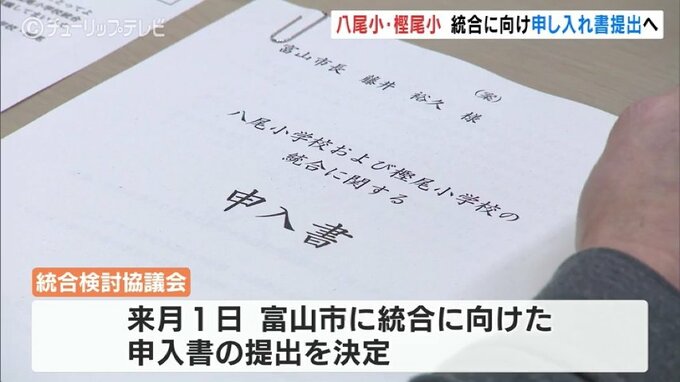 ©チューリップテレビ
八尾小・樫尾小 統合に向け申し入れ書提出へ
(案)
富山市長 藤井 裕久 様
八尾小学校および樫尾小学校の
統合に関する
申入書
統合検討協議会
来月1日 富山市に統合に向けた
申入書の提出を決定